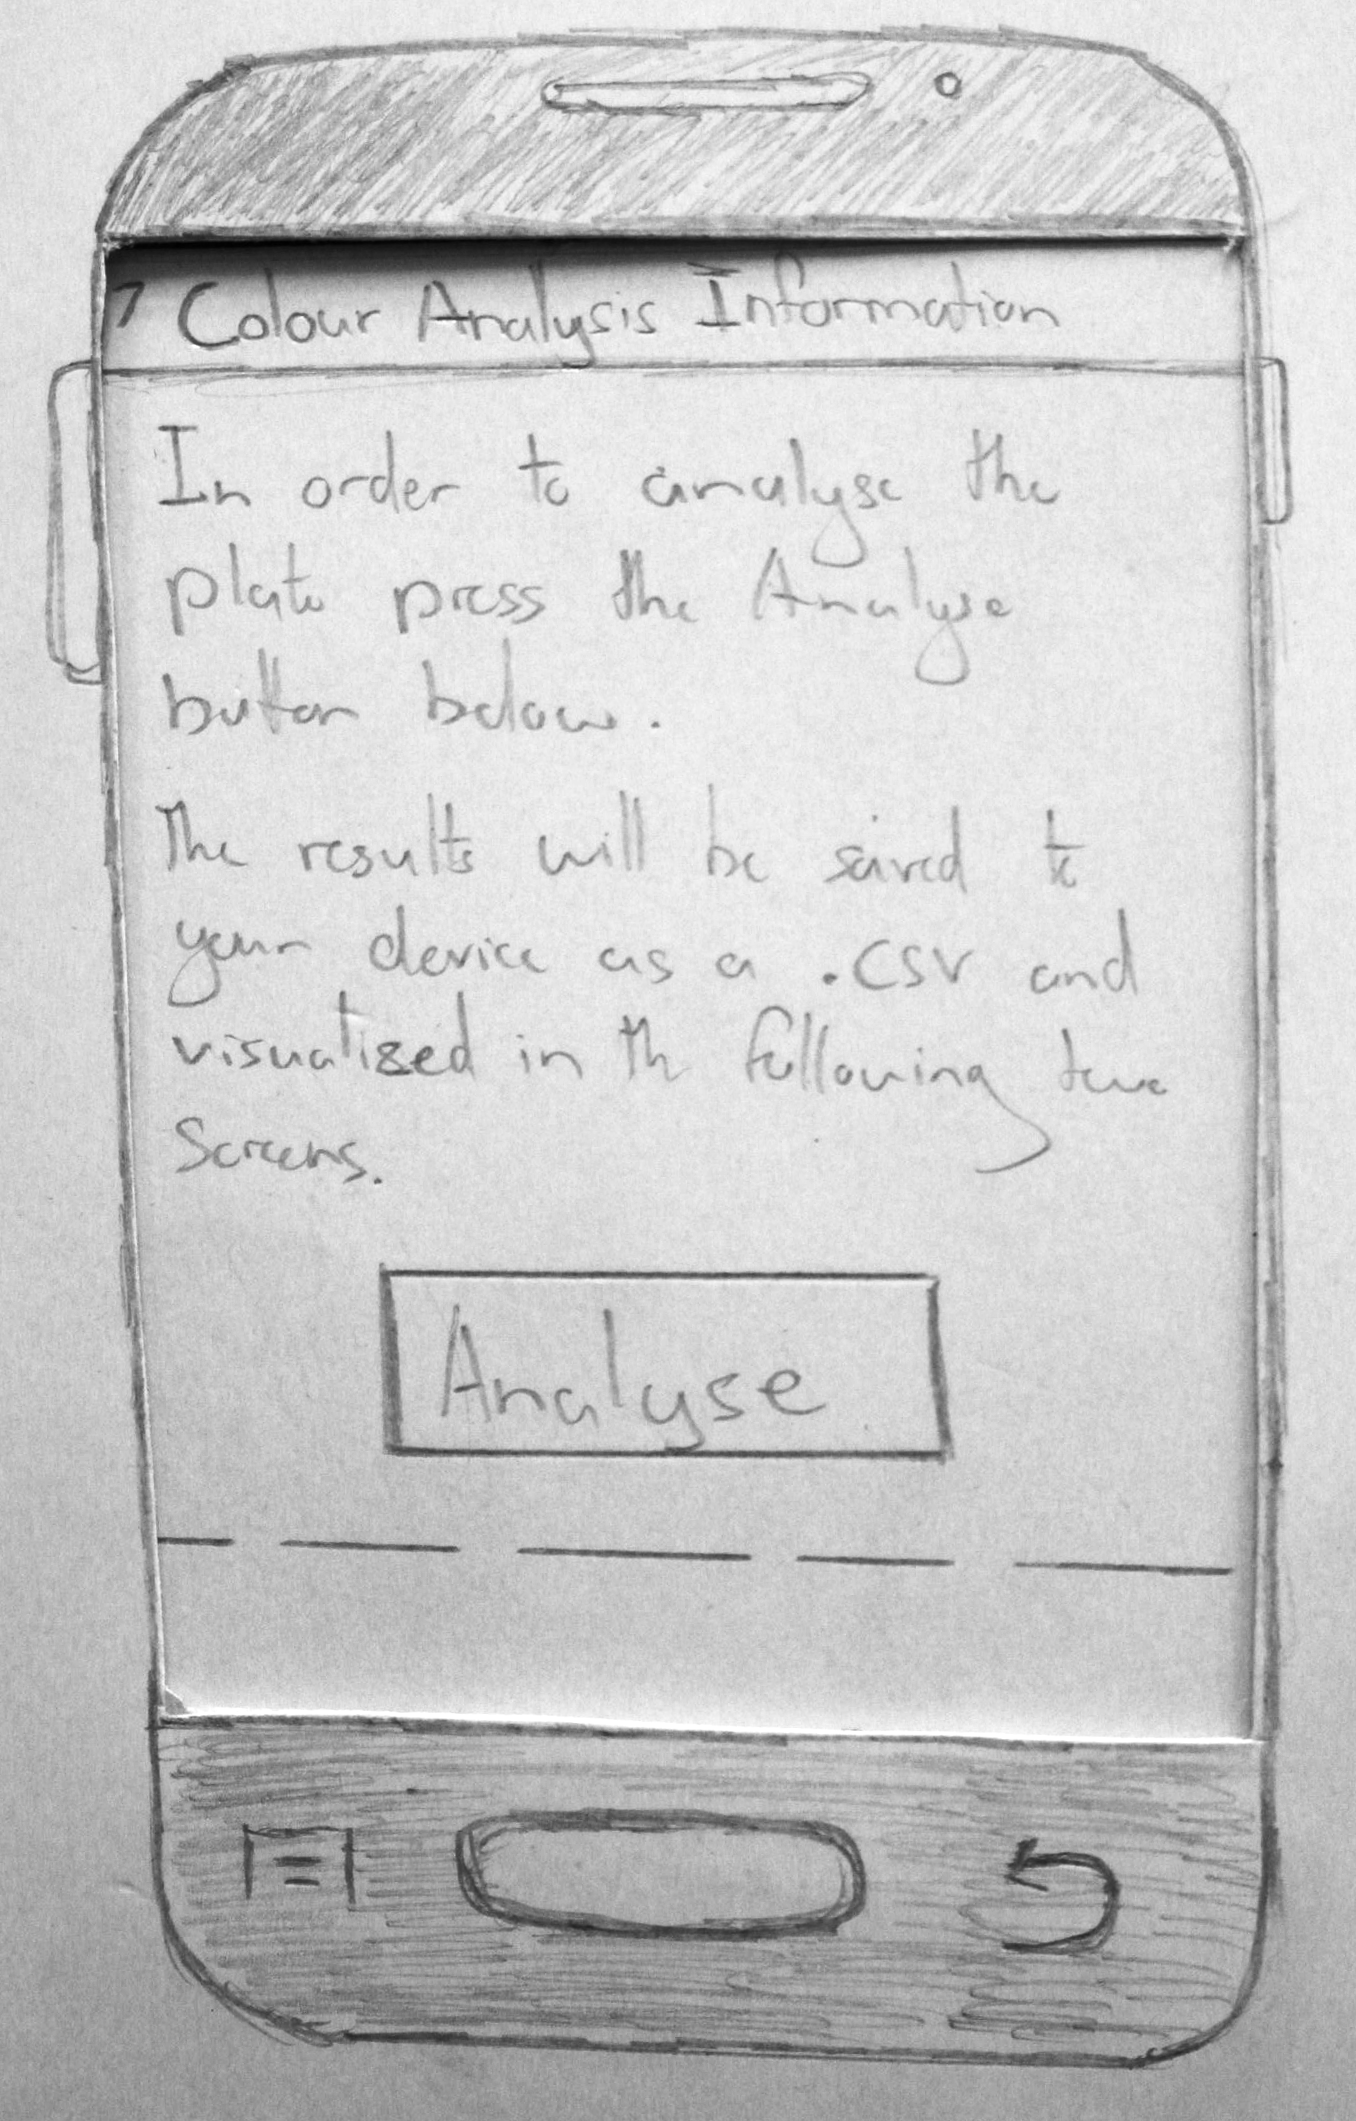 7 Colour Analysis Information
In order to analyse the
plate press the Analyse
button below.
The results will be saved to
your device as a .CSV and
visualised in th following two
screens.
Analyse